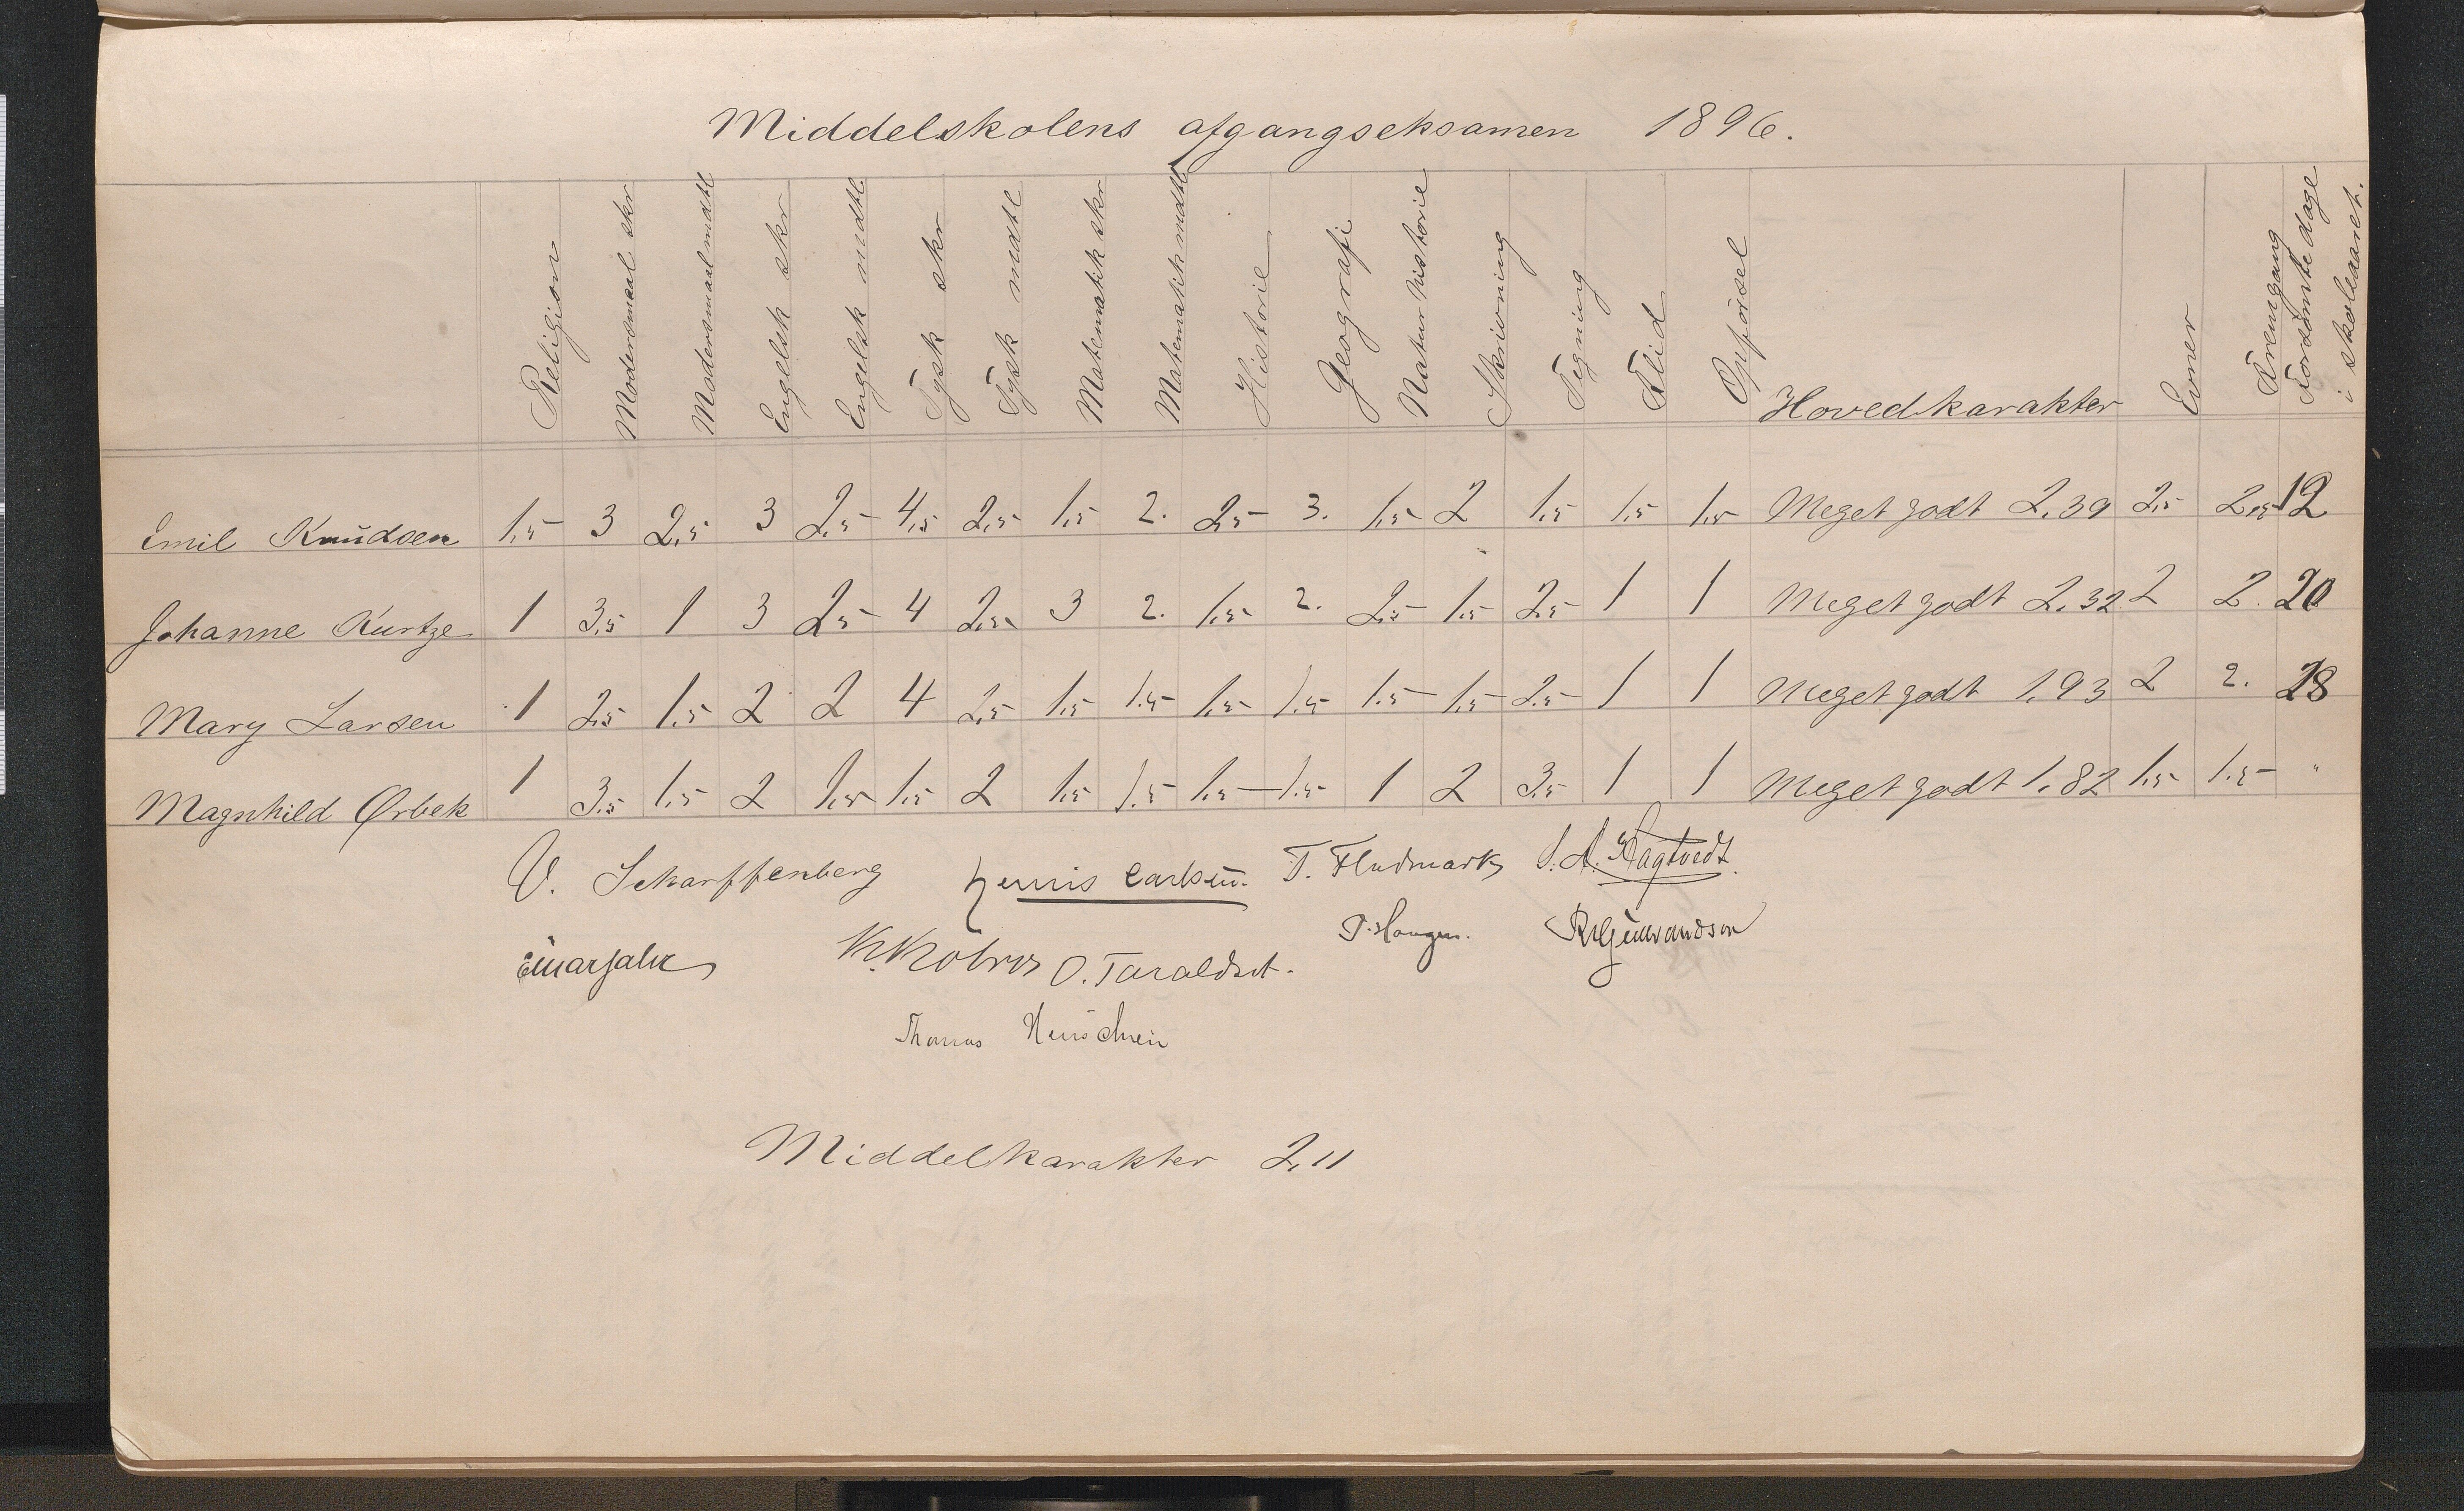 Middelskolens afgangseksamen 1896.
Religion Modersmaal skr Modersmaal mdtl Engelsk skr Engelsk mdtl Tysk skr Tysk mdtl Matematik skr Matematik mdtl Historie Geografi Naturhistorie Skrivning Tegning Flid Opførsel Hovedkarakter Evner Fremgang Forsømte dage i skoleaaret.
Emil Knudsen 1,5 3 2,5 3 2,5 4,5 2,5 1,5 2. 2,5 3. 1,5 2 1,5 1,5 1,5 Meget godt 2,39 2,5 2,5 12
Johanne Kurtze 1 3,5 1 3 2,5 4 2,5 3 2. 1,5 2. 2,5 1,5 2,5 1 1 Meget godt 2,32 2 2. 20
Mary Larsen 1 2,5 1,5 2 2 4 2,5 1,5 1,5 1,5 1,5 1,5 1,5 2,5 1 1 Meget godt 1,93 2 2. 28
Magnhild Ørbek 1 3,5 1,5 2 1,5 1,5 2 1,5 1,5 1,5 1,5 1 2 3,5 1 1 Meget godt 1,82 1,5 1,5 "
V. Scharffenberg Carlsen. T. Fludmark S. A. Hagtvedt.
O. Taraldset. T. Haugen.
Thomas
Middelkarakter 2,11